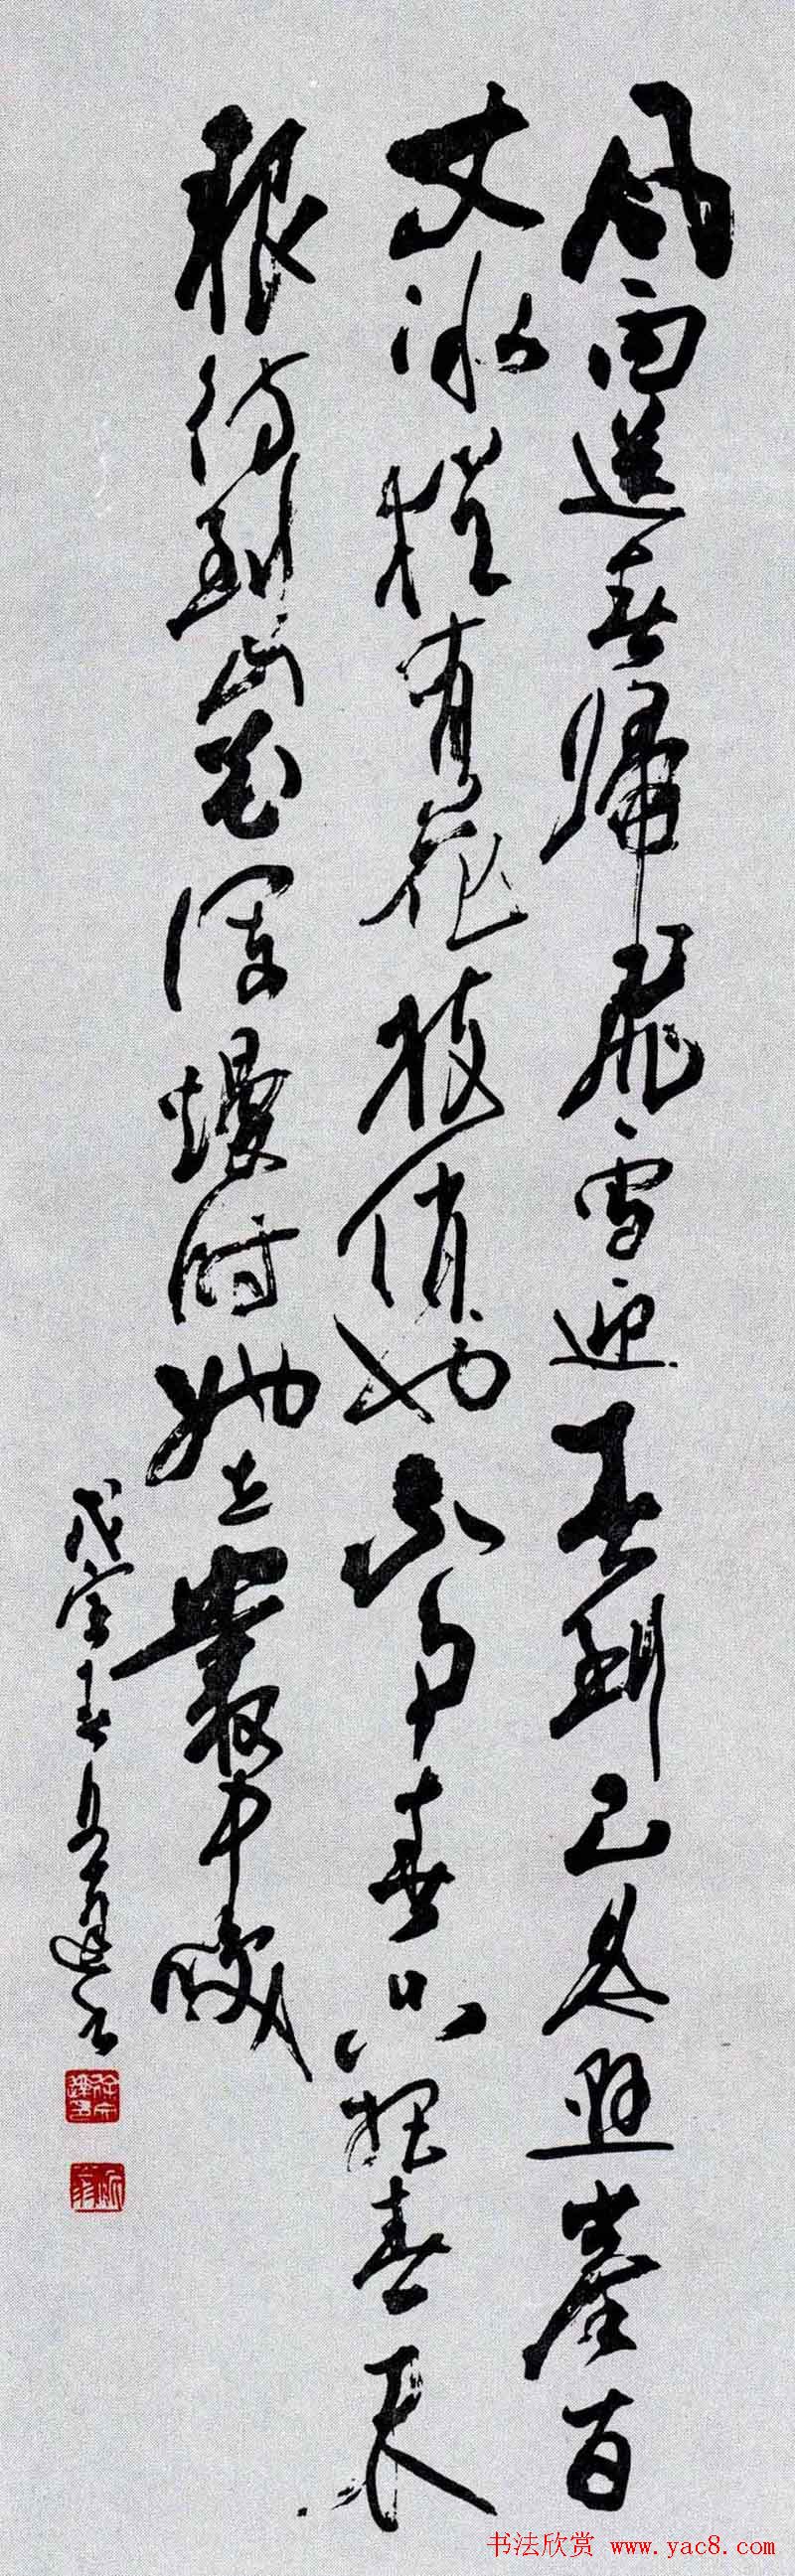 风雨送春歸飛雪迎春到已是悬崖百
丈冰犹有花枝俏也不争春只把春来
報待到山花爛熳时她在叢中咲
戊寅春
书法欣赏 www.yac8.com